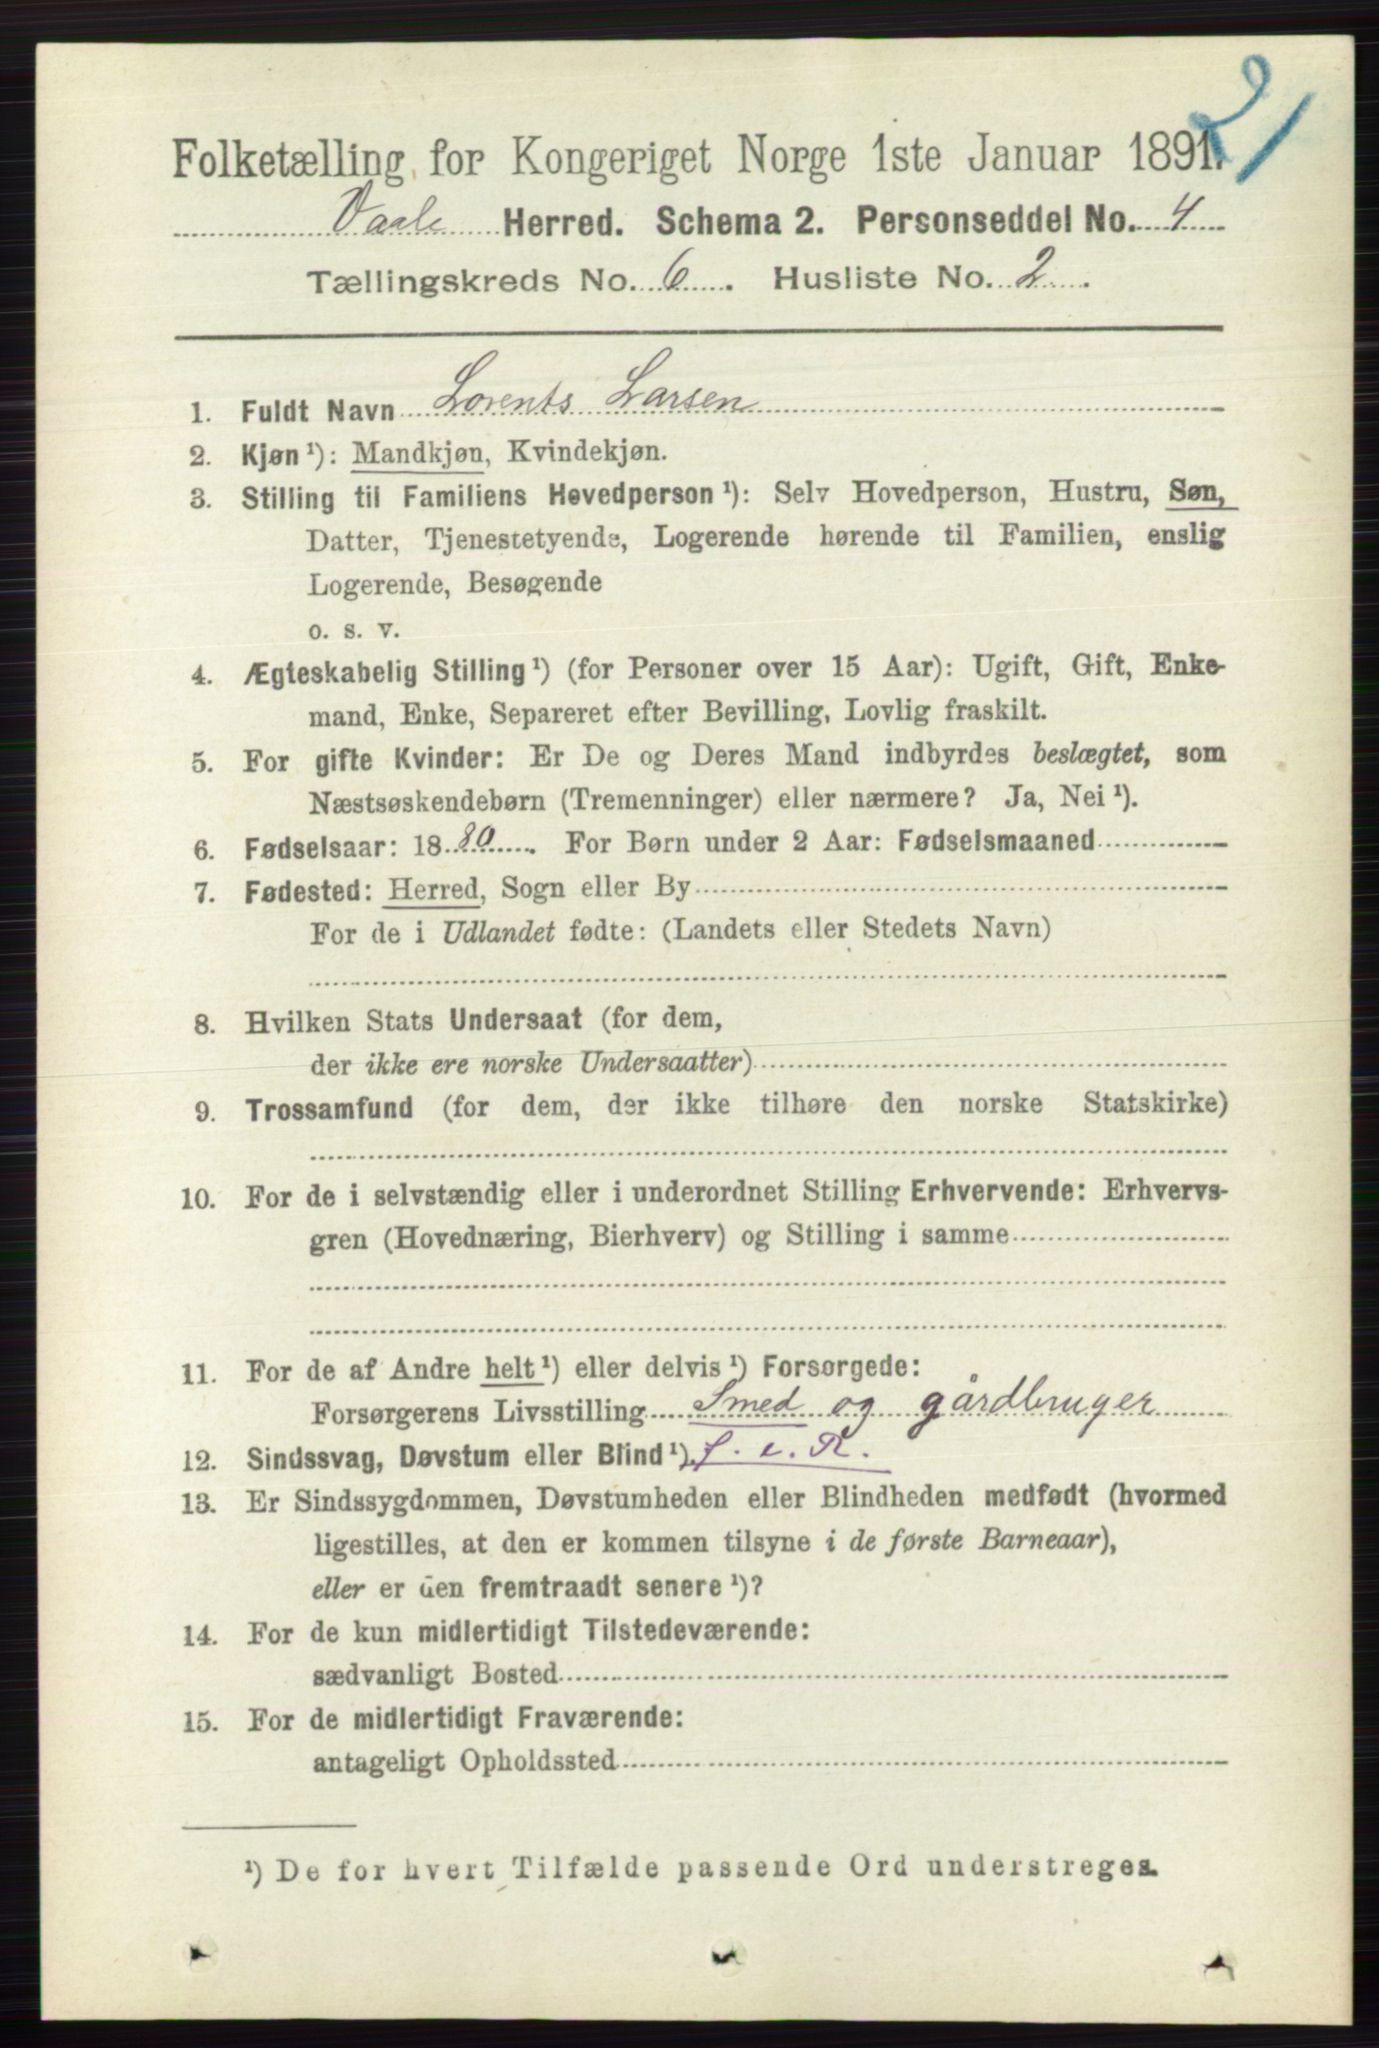 21
Folketælling for Kongeriget Norge 1ste Januar 1891.
Vaale Herred. Schema 2. Personseddel No. 4
Tællingskreds No. 6. Husliste No. 2.
1. Fuldt Navn Lorents Larsen
2. Kjøn¹): Mandkjøn, Kvindekjøn.
3. Stilling til Familiens Hovedperson¹): Selv Hovedperson, Hustru, Søn,
Datter, Tjenestetyende, Logerende hørende til Familien, enslig
Logerende, Besøgende
o. s. v.
4. Ægteskabelig Stilling¹) (for Personer over 15 Aar): Ugift, Gift, Enke-
mand, Enke, Separeret efter Bevilling, Lovlig fraskilt.
5. For gifte Kvinder: Er De og Deres Mand indbyrdes beslægtet, som
Næstsøskendebørn (Tremenninger) eller nærmere? Ja, Nei¹).
6. Fødselsaar: 1880. For Børn under 2 Aar: Fødselsmaaned
7. Fødested: Herred, Sogn eller By
For de i Udlandet fødte: (Landets eller Stedets Navn)
8. Hvilken Stats Undersaat (for dem,
der ikke ere norske Undersaatter)
9. Trossamfund (for dem, der ikke tilhøre den norske Statskirke)
10. For de i selvstændig eller i underordnet Stilling Erhvervende: Erhvervs-
gren (Hovednæring, Bierhverv) og Stilling i samme
11. For de af Andre helt¹) eller delvis¹) Forsørgede:
Forsørgerens Livsstilling Smed og gårdbruger
12. Sindssvag, Døvstum eller Blind¹).
13. Er Sindssygdommen, Døvstumheden eller Blindheden medfødt (hvormed
ligestilles, at den er kommen tilsyne i de første Barneaar),
eller er den fremtraadt senere¹)?
14. For de kun midlertidigt Tilstedeværende:
sædvanligt Bosted
15. For de midlertidigt Fraværende:
antageligt Opholdssted
¹) De for hvert Tilfælde passende Ord understreges.